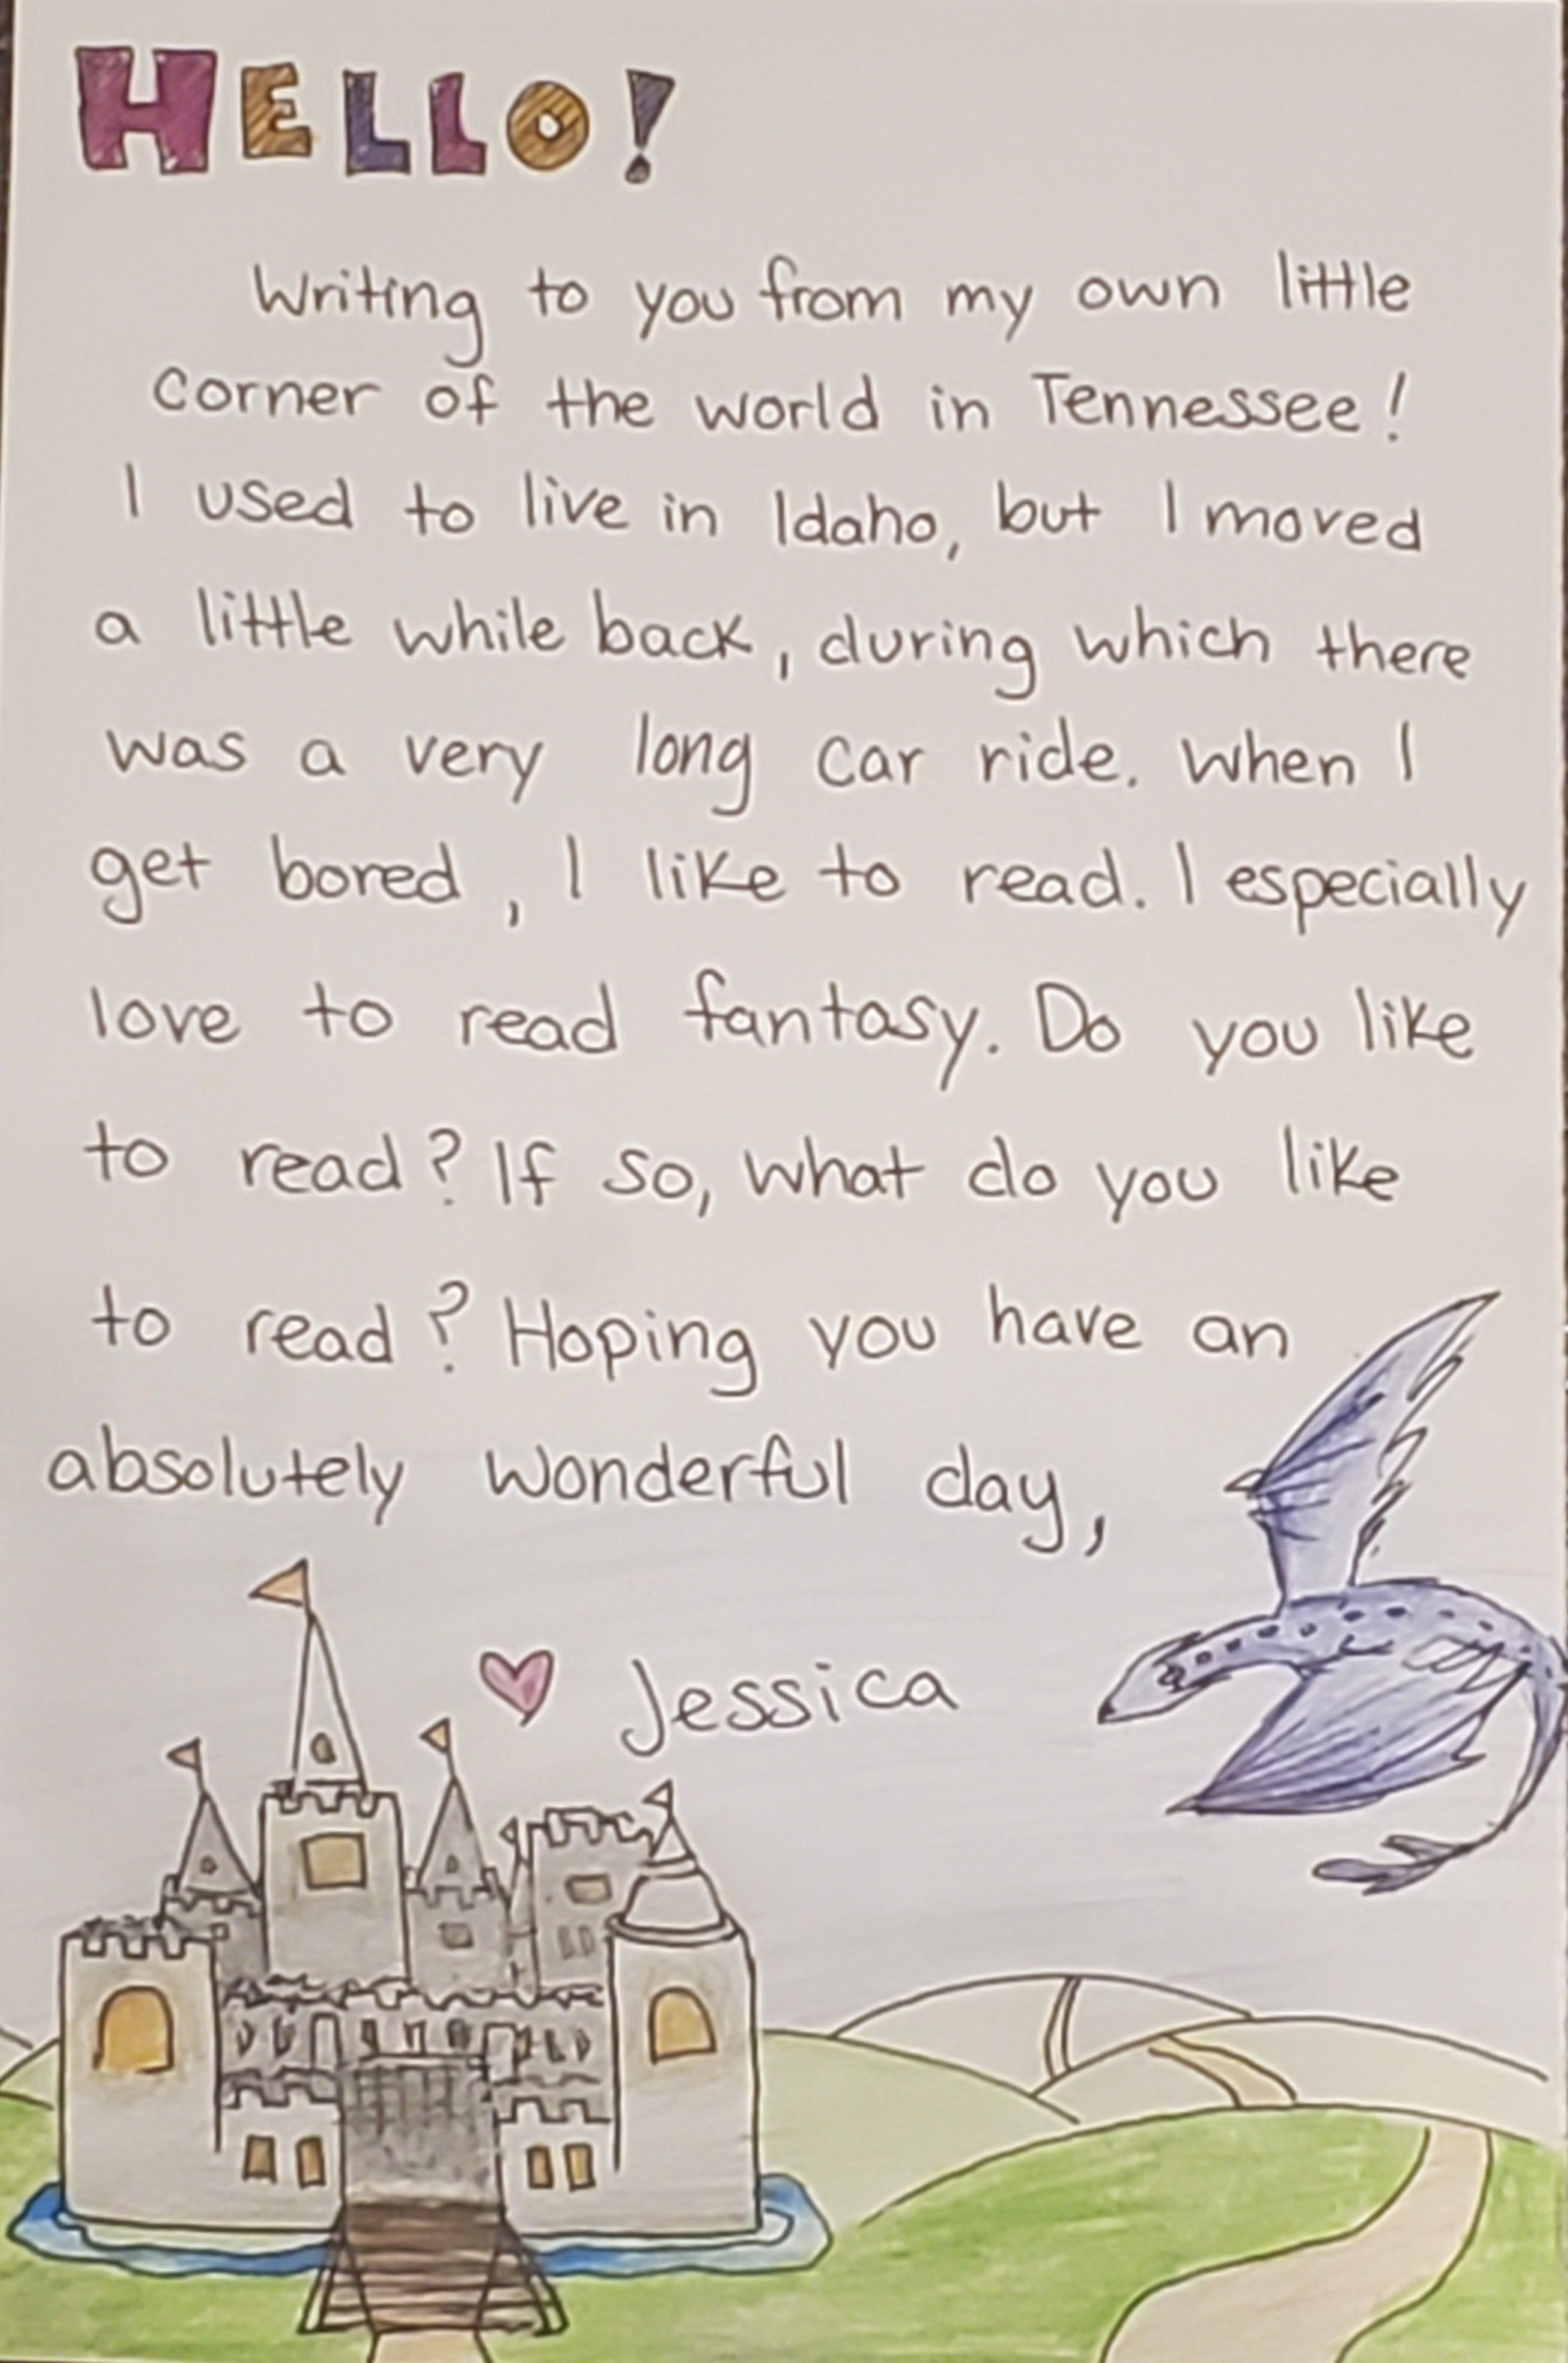 HELLO!
Writing to you from my own little
corner of the world in Tennessee!
I used to live in Idaho, but I moved
a little while back, during which there
was a very long car ride. When I
get bored, I like to read. I especially
love to read fantasy. Do you like
to read? If so, what do you like
to read? Hoping you have an
absolutely wonderful day,
Jessica